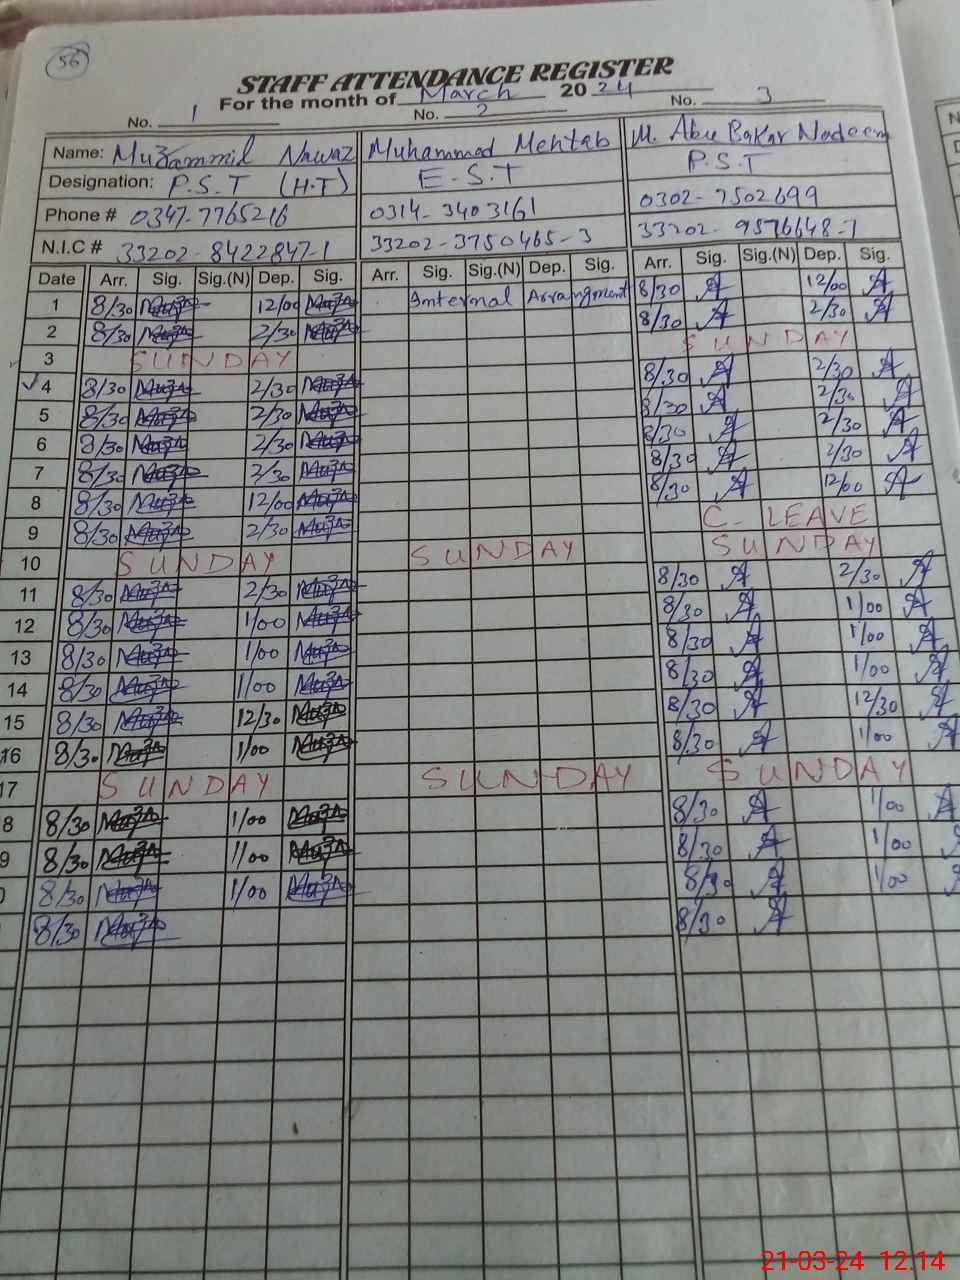 56
STAFF ATTENDANCE REGISTER
For the month of March 2024
No. 1 No. 2 No. 3
Name: Muzammil Nawaz Muhammad Mehtab M. Abu Bakar Nadeem
Designation: P.S.T (H.T) E-S.T P.S.T
Phone # 0347-7765216 0314-3403161 0302-7502699
N.I.C # 33202-8422847-1 33202-3750465-3 33202-9576648-7
Date Arr. Sig. Sig.(N) Dep. Sig. Arr. Sig. Sig.(N) Dep. Sig. Arr. Sig. Sig.(N) Dep. Sig.
1 8/30 12/00 Internal Arrangment 8/30 12/00
2 8/30 2/30 8/30 2/30
3 SUNDAY SUNDAY
4 8/30 2/30 8/30 2/30
5 8/30 2/30 8/30 2/30
6 8/30 2/30 8/30 2/30
7 8/30 2/30 8/30 2/30
8 8/30 12/00 8/30 12/00
9 8/30 2/30 C. LEAVE
10 SUNDAY SUNDAY SUNDAY
11 8/30 2/30 8/30 2/30
12 8/30 1/00 8/30 1/00
13 8/30 1/00 8/30 1/00
14 8/30 1/00 8/30 1/00
15 8/30 12/30 8/30 12/30
16 8/30 1/00 8/30 1/00
17 SUNDAY SUNDAY SUNDAY
8 8/30 1/00 8/30 1/00
9 8/30 1/00 8/30 1/00
8/30 1/00 8/30 1/00
8/30 8/30
21-03-24 12.14